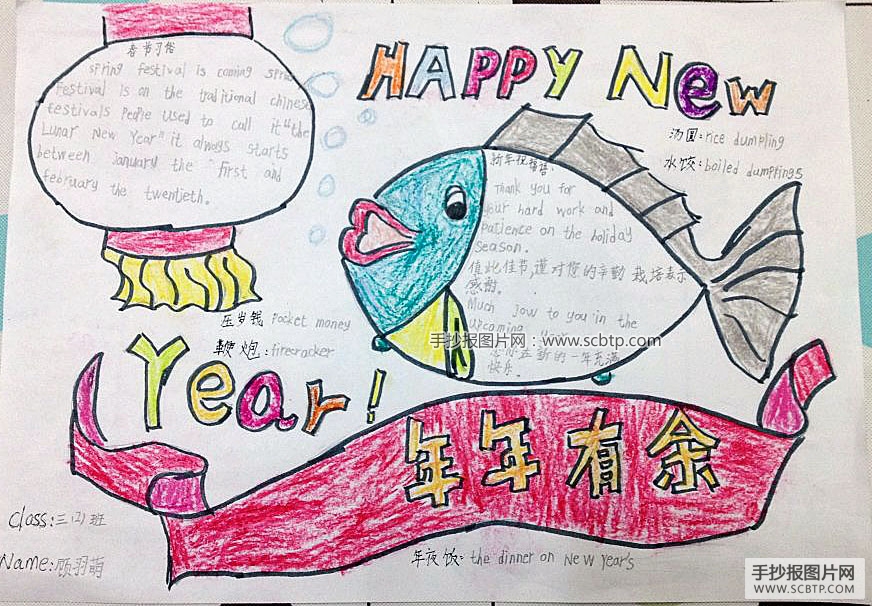 春节习俗
spring festival is coming spring
festival is on the traditional chinese
festivals People used to call it "the
Lunar New Year" it always starts
between January the first and
february the twentieth.
HAPPY New
汤圆:rice dumpling
水饺:boiled dumplings
新年祝福语:
Thank you for
your hard work and
patience on the holiday
season.
值此佳节,谨对您的辛勤栽培表示
感谢。
Much Jow to you in the
upcoming
的一年充满
快乐。
手抄报图片网:www.scbtp.com
压岁钱 Pocket money
鞭炮:firecracker
Year!
年年有余
Class:三(2)班
Name:顾羽萌
年夜饭:the dinner on New Year's
手抄报图片网
WWW.SCBTP.COM